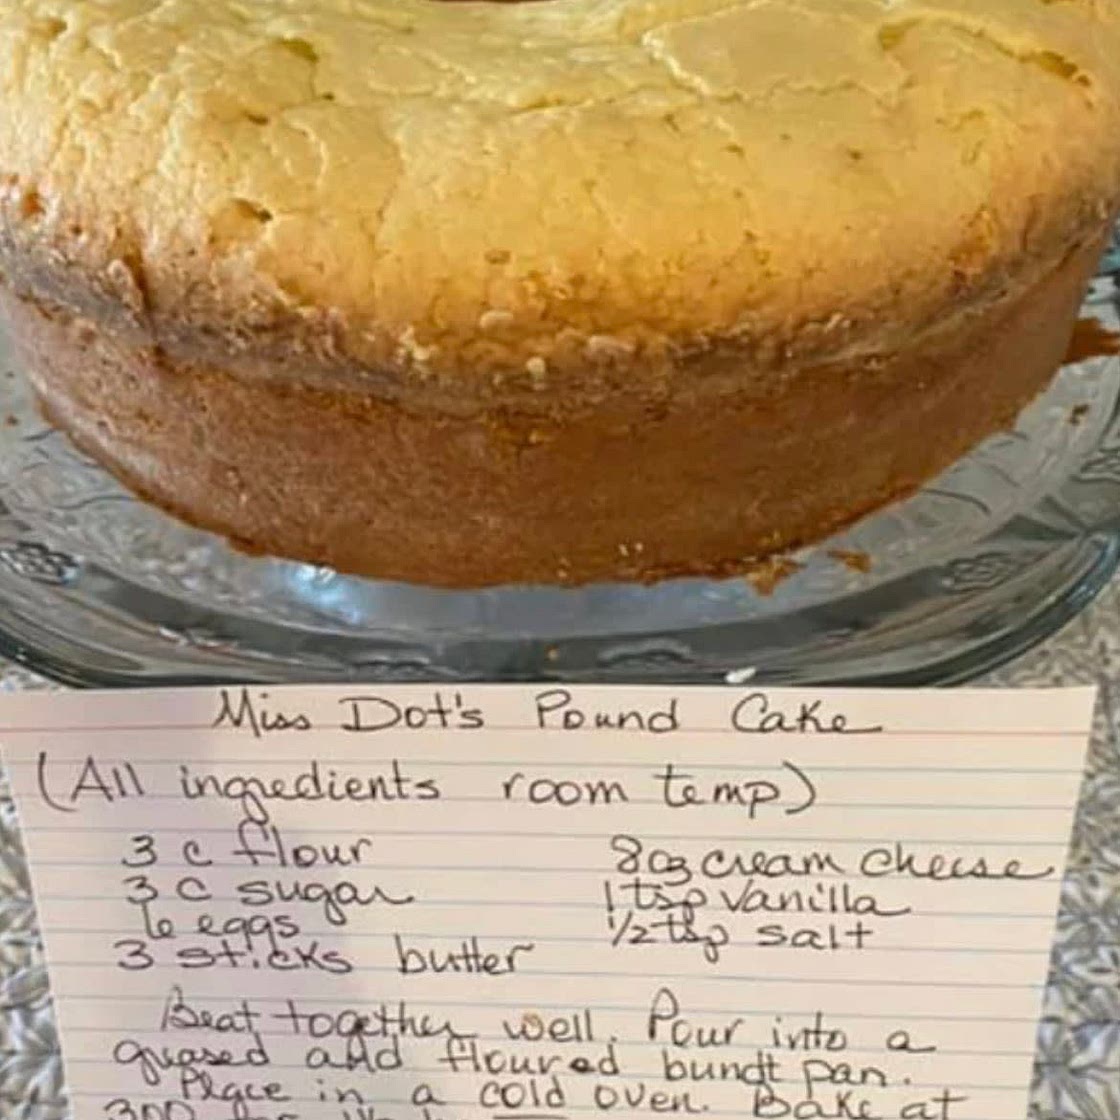 Miss Dot's Pound Cake
(All ingredients room temp)
3 c flour 8 oz cream cheese
3 c sugar 1 tsp vanilla
6 eggs 1/2 tsp salt
3 sticks butter
Beat together well. Pour into a
greased and floured bundt pan.
Place in a cold oven. Bake at
300